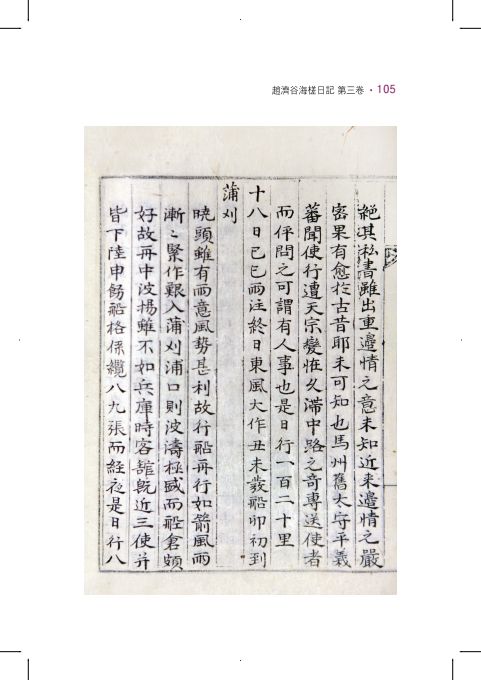 趙濟谷海槎日記 第三卷 • 105
絕其私書雖出重邊情之意未知近來邊情之嚴
密果有愈於古昔耶未可知也馬州舊太守平義
蕃聞使行遭天宗變恠久滯中路之奇專送使者
而伻問之可謂有人事也是日行一百二十里
十八日己巳雨注終日東風大作丑未發船卯初到
蒲刈
曉頭雖有雨意風勢甚利故行船再行如箭風雨
漸〻緊作艱入蒲刈浦口則波濤極盛而船倉頗
好故再中波揚雖不如兵庫時客館旣近三使并
皆下陸申飭船格係纜八九張而經夜是日行八